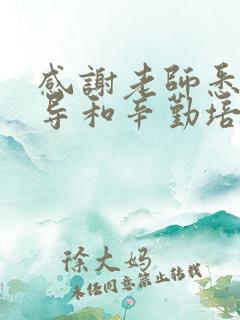 感謝老師悉
导和辛勤培
徐大妈
未经同意禁止转载